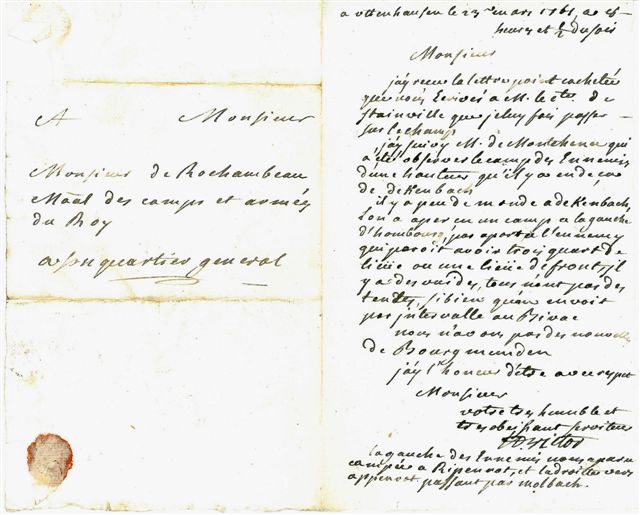 A Monsieur
Monsieur de Rochambeau
Mâal des camps et armées
du Roy
a son quartier general
a ottenhausen le 23 mars 1761, a
heures et ½ du soir
Monsieur
j'ay receu la lettre point cachetée
que vous Ecrivés a M. le cte. de
stainville que je luy fais passer
sur le champ
j'ay M. de Montchenu qui
a été observer le camp des Ennemis
d'une hauteur qu'il y a en deça
de dekenbach
il y a peu de monde a dekenbach,
l'on a aperçu un camp a la gauche
d'hombourg, par aport a l'ennemy
qui paroit avoir trois quart de
lieüe ou une lieüe de front, il
y a des tous n'ont pas des
tentes, si bien qu'on en voit
par intervalle au Bivac
nous n'avons pas des nouvelles
de
j'ay l'honeur d'être avec respect
Monsieur
votre tres humble et
tres obeissant serviteur
la gauche des Ennemis nous a paru
campée a Ripenrot, et la droite vers
appenrot passant par molbach.